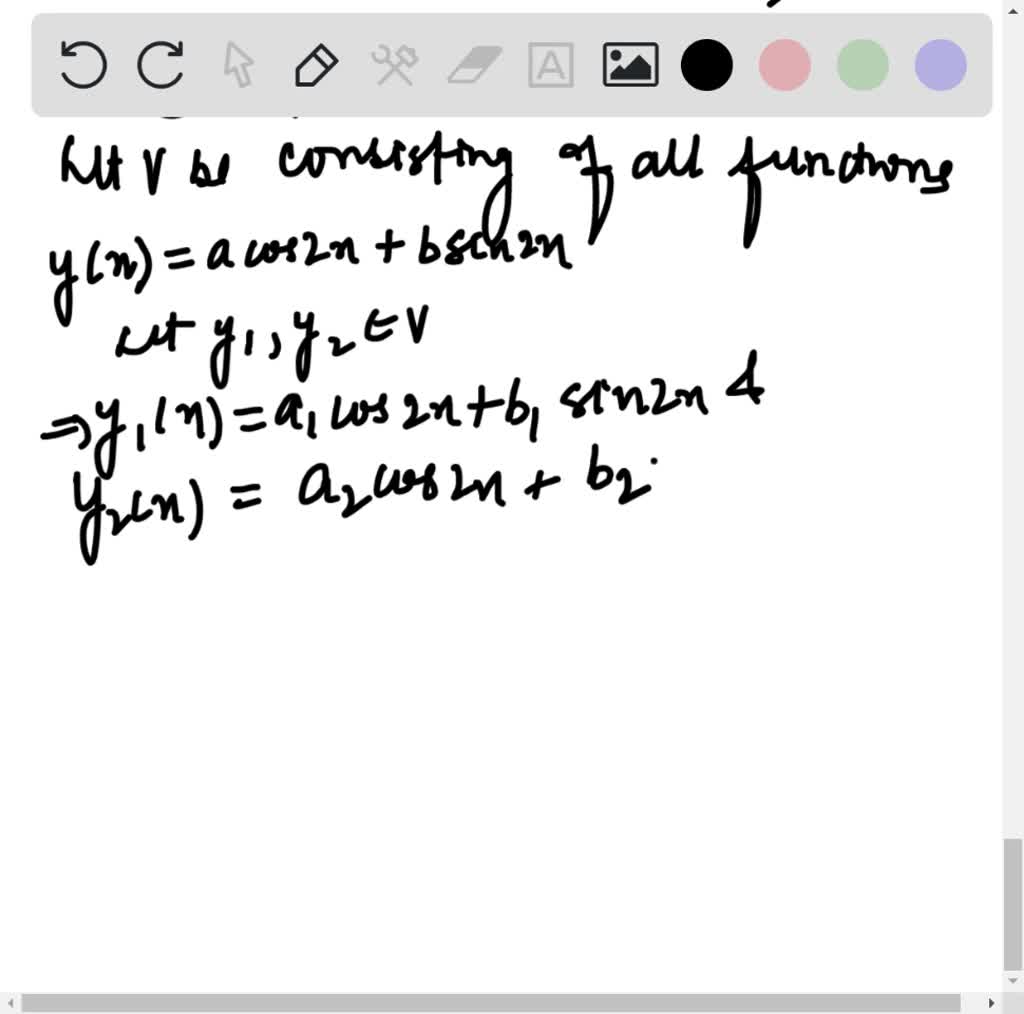 Let V be consisting of all functions
y(x) = a cos2x + b sin2x
Let y₁, y₂ ∈ V
⇒ y₁(x) = a₁ cos 2x + b₁ sin2x &
y₂(x) = a₂ cos 2x + b₂
A